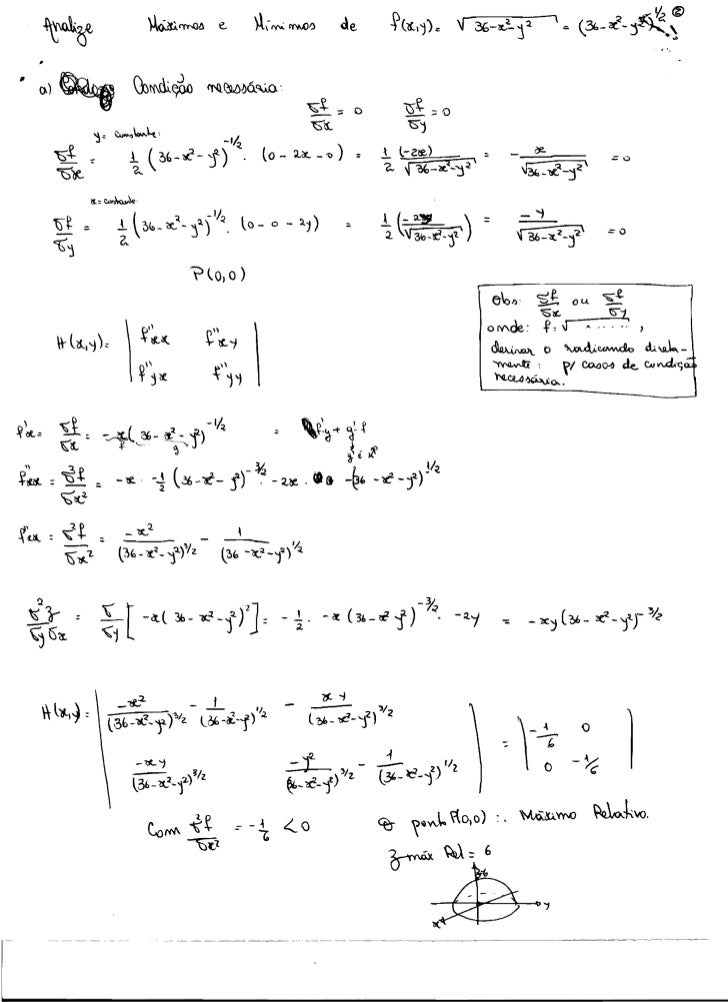 Analize Máximos e Mínimos de f(x,y)= √36-x²-y² = (36-x²-y²)^1/2 ②
a) Condição necessária:
σf/σx = 0 σf/σy = 0
y= constante:
σf/σx = 1/2 (36-x²-y²)^-1/2 . (0-2x-0) = 1/2 (-2x)/√36-x²-y² = -x/√36-x²-y² = 0
x= constante
σf/σy = 1/2 (36-x²-y²)^-1/2 . (0-0-2y) = 1/2 (-2y/√36-x²-y²) = -y/√36-x²-y² = 0
P(0,0)
Obs: σf/σx ou σf/σy
onde: f=√ ...... ,
derivar o radicando direta-
mente: p/ casos de condição
necessária.
H(x,y)= | f"xx f"xy |
| f"yx f"yy |
f'x= σf/σx = -x(36-x²-y²)^-1/2 = f'y + g'f
f"xx = σ²f/σx² = -x . -1/2 (36-x²-y²)^-3/2 . -2x . -(36-x²-y²)^1/2
f"xx = σ²f/σx² = -x²/(36-x²-y²)^3/2 - 1/(36-x²-y²)^1/2
σ²z/σyσx = σ/σy [-x(36-x²-y²)²] = -1/2 . -x(36-x²y²)^-3/2 . -2y = -xy(36-x²-y²)^-3/2
H(x,y)= | -x²/(36-x²-y²)^3/2 - 1/(36-x²-y²)^1/2 - xy/(36-x²-y²)^3/2 | = | -1/6 0 |
| -xy/(36-x²-y²)^3/2 -y²/(36-x²-y²)^3/2 - 1/(36-x²-y²)^1/2 | | 0 -1/6 |
Com σ²f/σx² = -1/6 < 0 O ponto P(0,0) ∴ Máximo Relativo.
z máx Rel = 6
36
x y